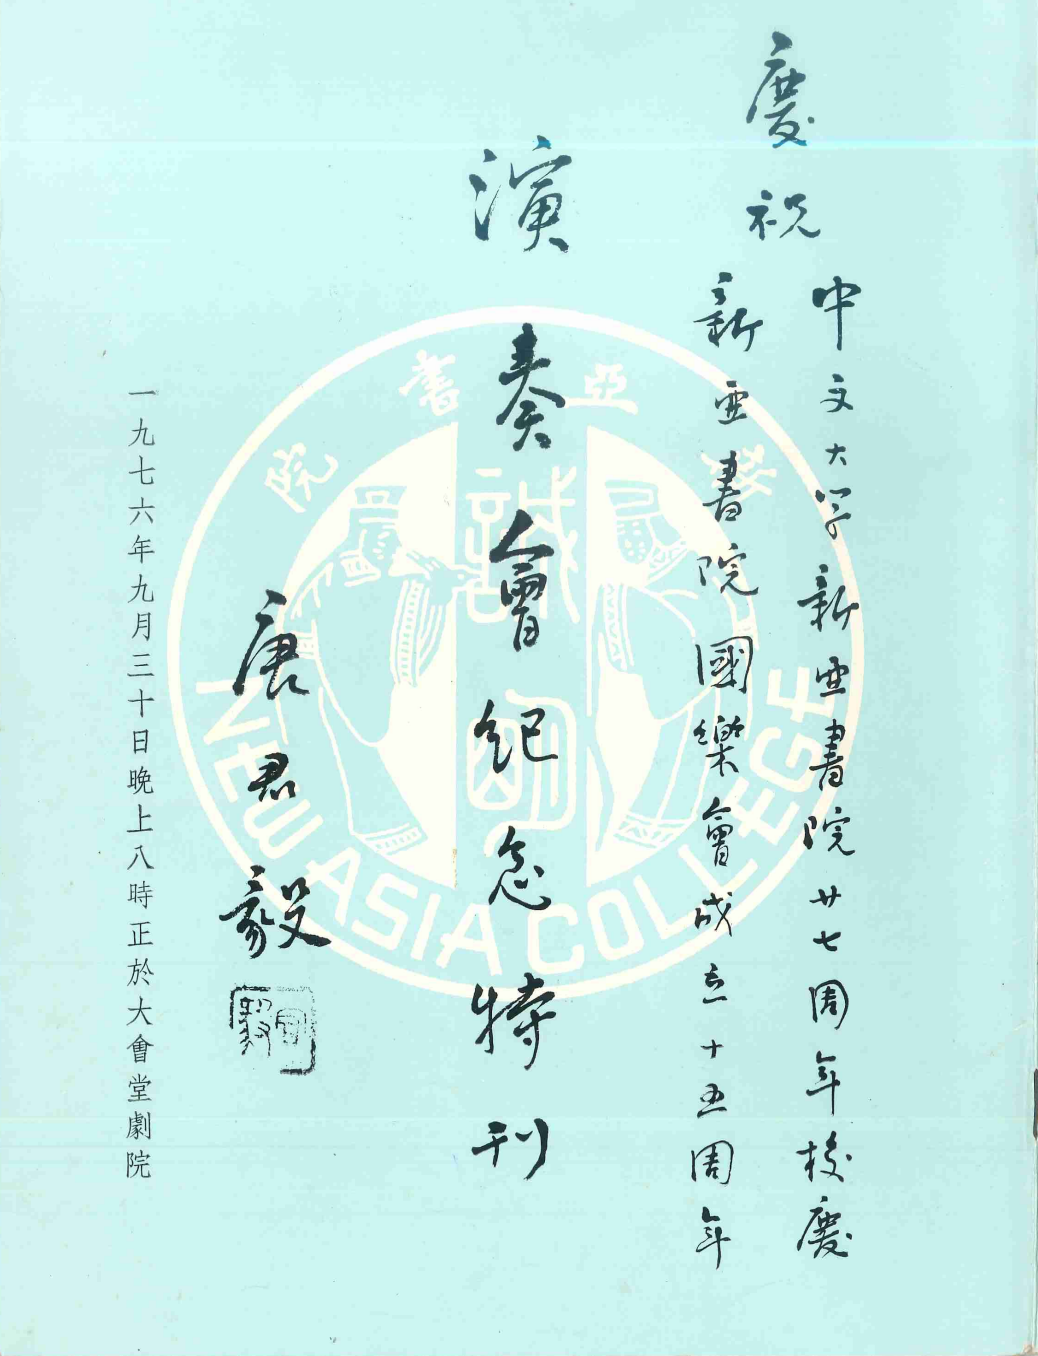 慶祝
中文大学新亜書院廿七周年校慶
新亜書院國樂會成立十五周年
演奏會紀念特刊
唐君毅
一九七六年九月三十日晚上八時正於大會堂劇院
新亞書院
誠明
NEW ASIA COLLEGE